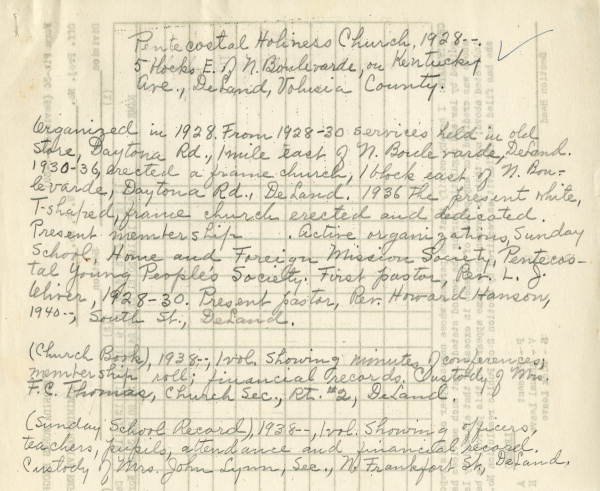 Pentecostal Holiness Church, 1928--.
5 blocks E. of N. Boulevarde, on Kentucky
Ave., DeLand, Volusia County.
Organized in 1928. From 1928-30 services held in old
store, Daytona Rd., 1 mile east of N. Boulevarde, DeLand.
1930-36, erected a frame church, 1 block east of N. Bou-
levarde, Daytona Rd., DeLand. 1936 the present white,
T-shaped, frame church erected and dedicated.
Present membership . Active organizations, Sunday
School, Home and Foreign Mission Society, Pentecos-
tal Young People's Society. First pastor, Rev. L. J.
1928-30. Present pastor, Rev. Howard Hanson,
1940--, South St., DeLand.
(Church Book), 1938--, 1 vol. Showing minutes of conferences;
membership roll; financial records. Custody of Mrs.
F.C. Thomas, Church Sec., Rt. #2, DeLand.
(Sunday School Record), 1938--, 1 vol. Showing officers,
teachers, pupils, attendance and financial record.
Custody of Mrs. John Lynn, Sec., N. Frankfort St., DeLand.